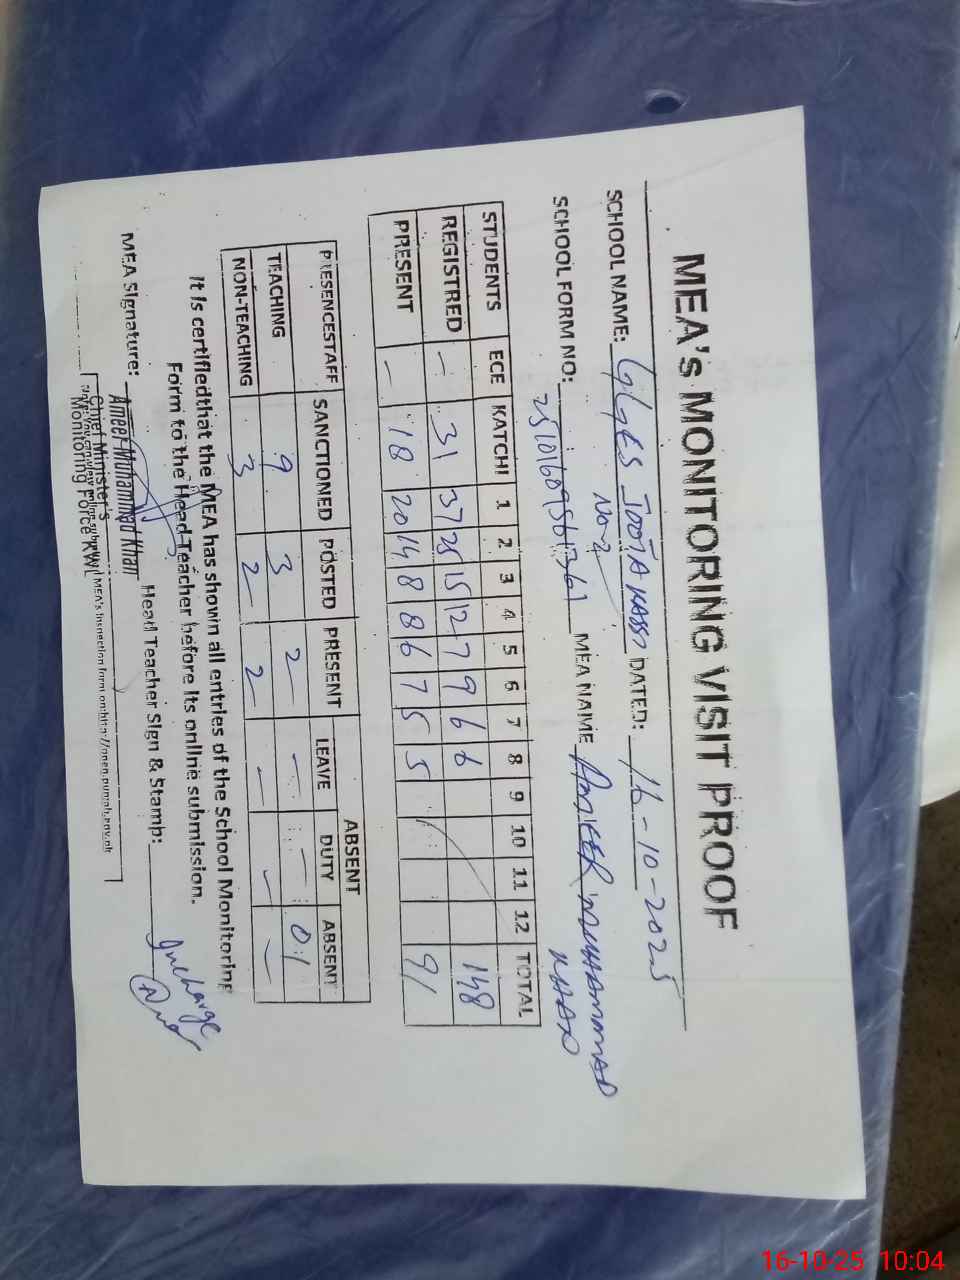 MEA's MONITORING VISIT PROOF
SCHOOL NAME: GGES JOOTA KASSI NO-2 DATED: 16-10-2025
SCHOOL FORM NO: MEA NAME AMEER MUHAMMAD KHAN
STUDENTS ECE KATCHI 1 2 3 4 5 6 7 8 9 10 11 12 TOTAL
REGISTRED - 31 37 25 15 12 7 9 6 6 148
PRESENT - 18 20 14 8 8 6 7 5 5 91
ABSENT
PRESENCESTAFF SANCTIONED POSTED PRESENT LEAVE DUTY ABSENT
TEACHING 9 3 2 - - 01
NON-TEACHING 3 2 2 - - -
It is certifiedthat the MEA has shown all entries of the School Monitoring
Form to the Head Teacher before its onilne submission.
MEA Signature: Head Teacher Sign & Stamp: Incharge
Ameer Muhammad Khan
Chief Minister's
Monitoring Force KWL
MEA's Inspection form on:
16-10-25 10:04